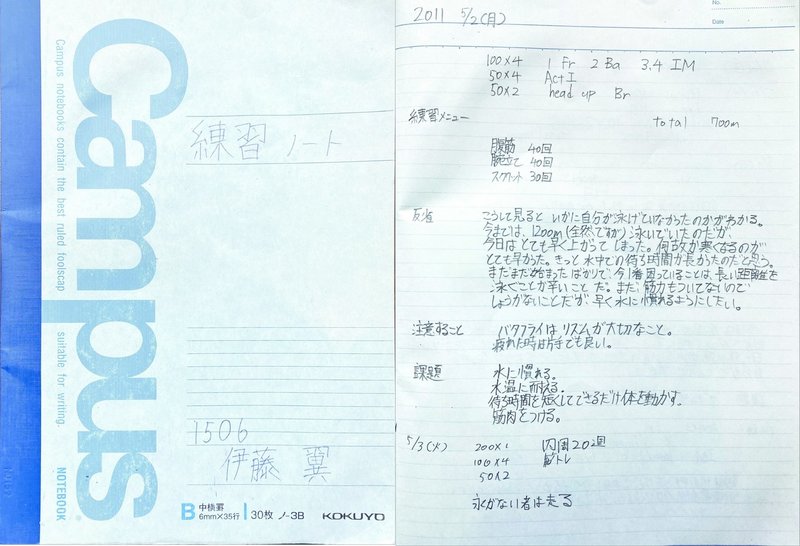 Campus
Campus notebooks contain the best ruled foolscap suitable for writing.
NOTEBOOK
練習 ノート
1506
伊藤 翼
B 中横罫 6mm×35行 30枚 ノ-3B KOKUYO
No.
Date
2011 5/2(月)
100×4 1 Fr 2 Ba 3.4 IM
50×4 Act I
50×2 head up Br
練習メニュー total 700m
腹筋 40回
腕立て 40回
スクワット 30回
反省 こうして見ると いかに自分が泳げていなかったのかがわかる。
今までは、1200m(全然ですが)泳いでいたのだが、
今日は とても早く上がって しまった。何故か寒くなるのが
とても早かった。きっと水中での待ち時間が長かったのだと思う。
まだまだ始まったばかりで、今1番困っていることは、長い距離を
泳ぐことが辛いこと だ。まだ、筋力もついてないので
しょうがないことだが、早く水に慣れるようにしたい。
注意すること バタフライは リズムが大切なこと。
疲れた時は片手でも良い。
課題 水に慣れる。
水温に耐える。
待ち時間を短くしてできるだけ体を動かす。
筋肉をつける。
5/3(火) 200×1 内周20週
100×4 筋トレ
50×2
泳がない者は走る